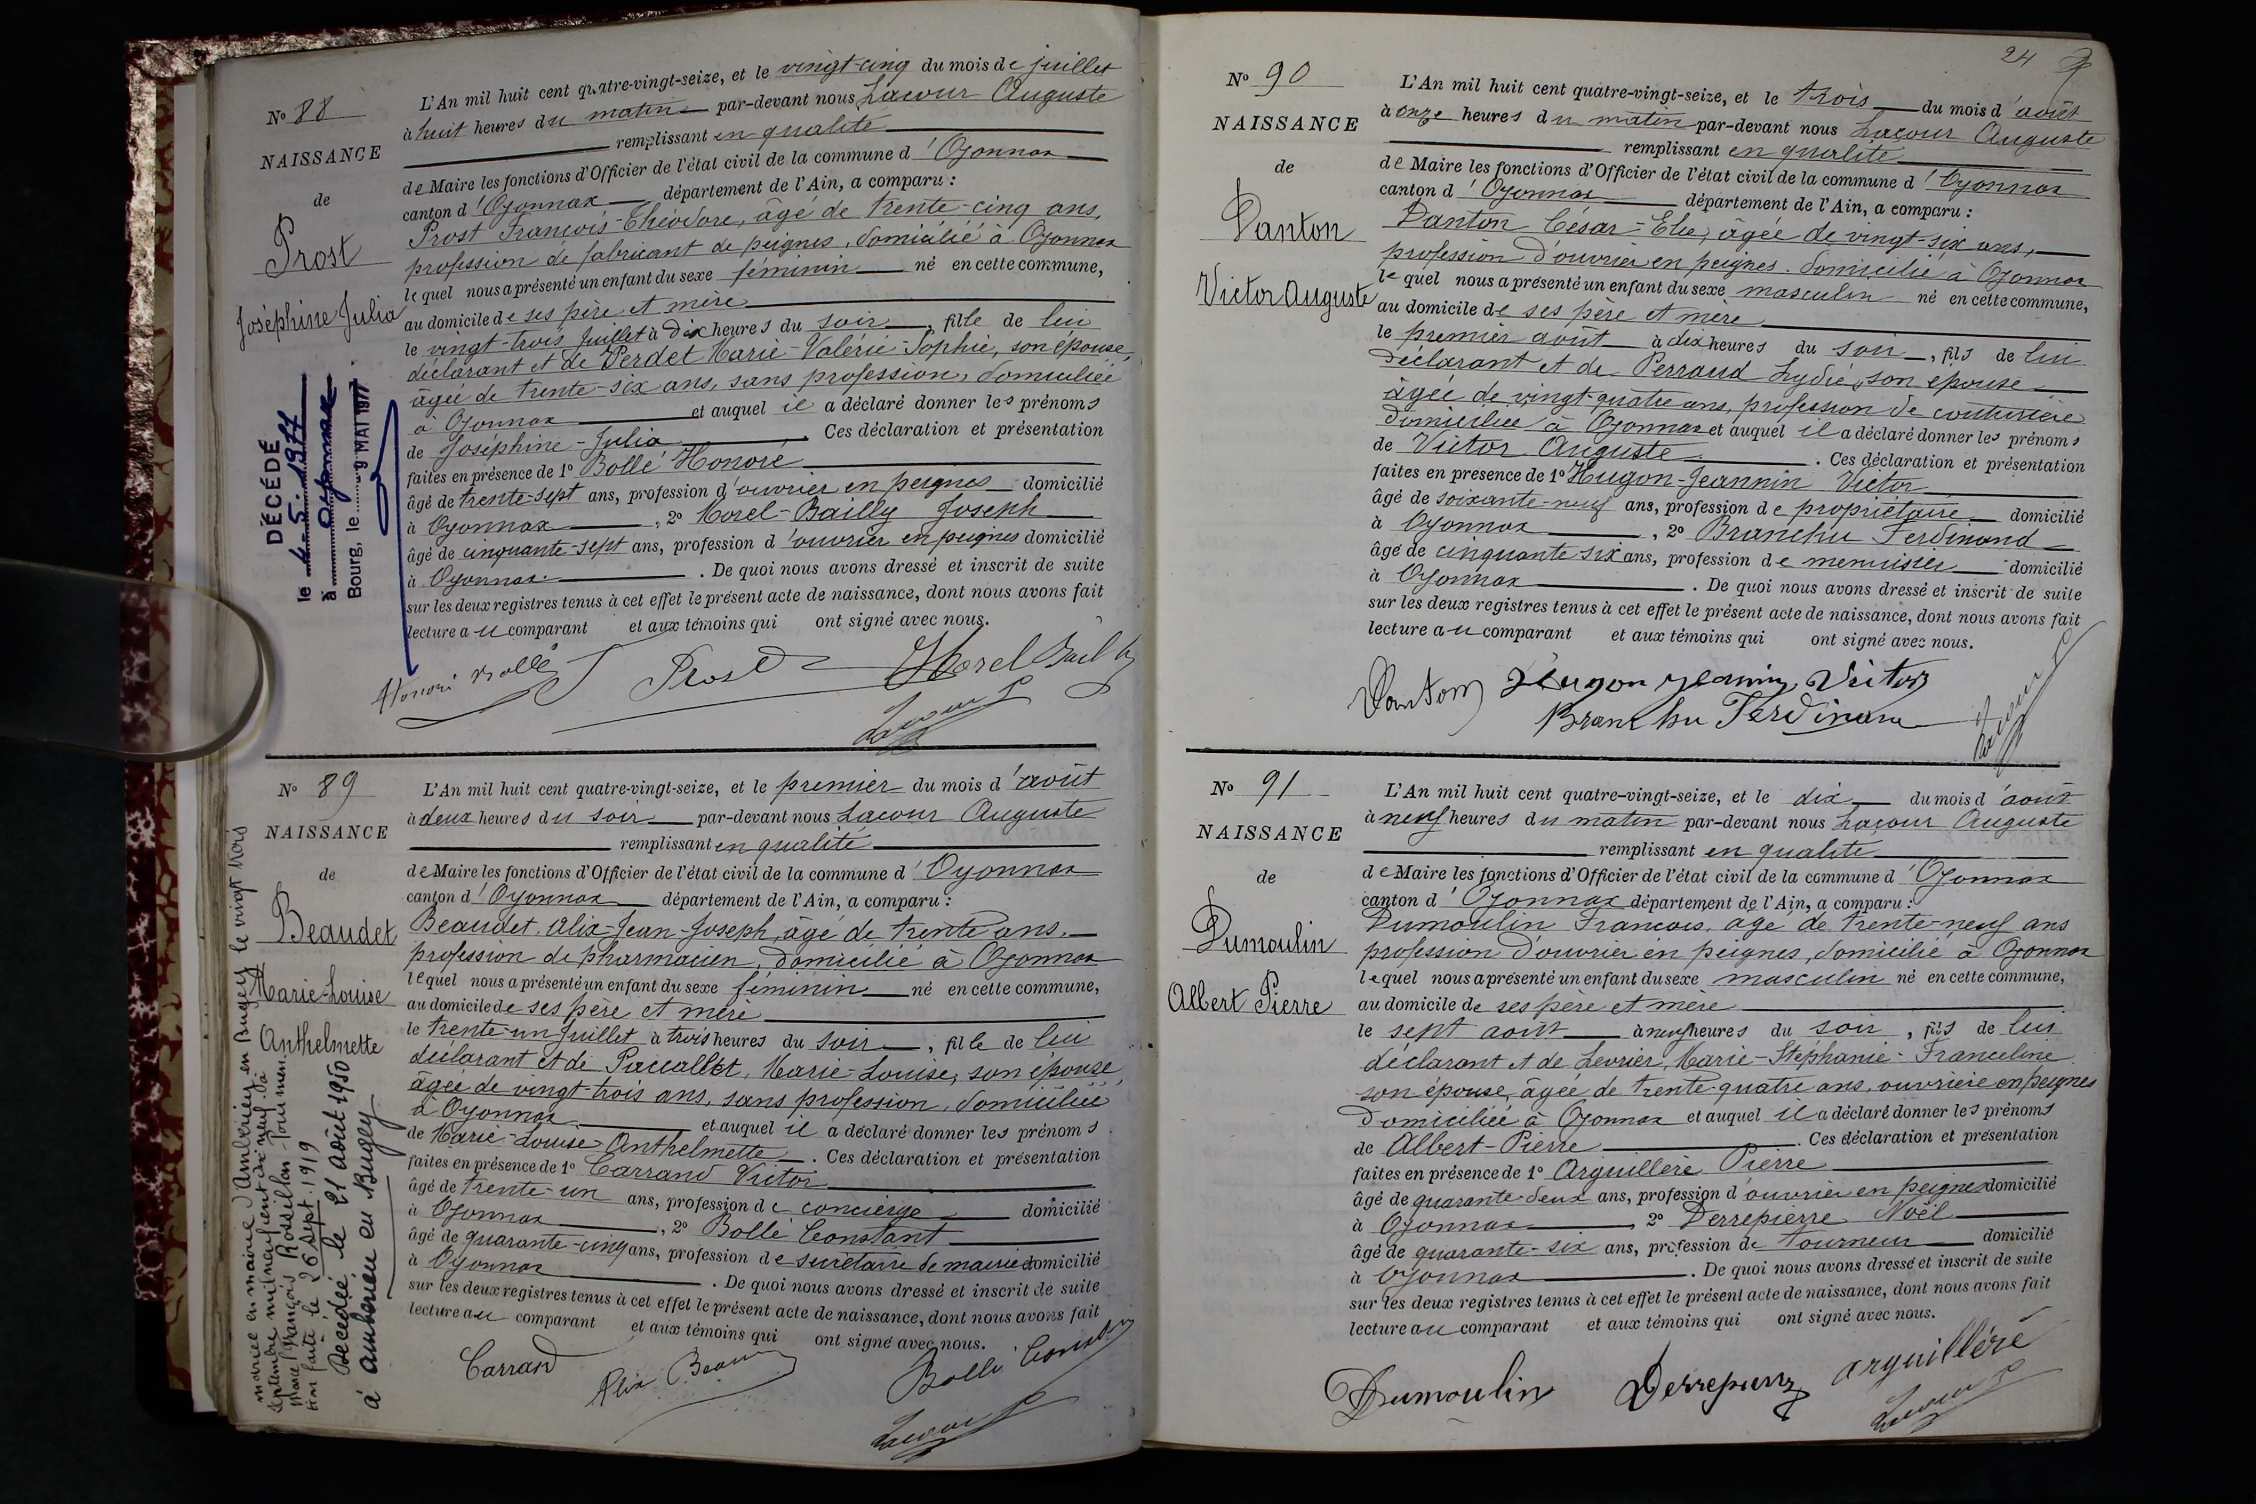 No 88
NAISSANCE
de
Prost
Joséphine Julia
DÉCÉDÉ
le 4.5.1977
à Oyonnax
Bourg, le 9 MAI 1977
L'An mil huit cent quatre-vingt-seize, et le vingt-cinq du mois de juillet
à huit heures du matin par-devant nous Lacour Auguste
remplissant en qualité
de Maire les fonctions d'Officier de l'état civil de la commune d'Oyonnax
canton d'Oyonnax département de l'Ain, a comparu :
Prost François-Théodore, âgé de trente-cinq ans,
profession de fabricant de peignes, domicilié à Oyonnax
lequel nous a présenté un enfant du sexe féminin né en cette commune,
au domicile de ses père et mère
le vingt-trois juillet à dix heures du soir, fille de lui
déclarant et de Perdet Marie-Valérie-Sophie, son épouse,
âgée de trente-six ans, sans profession, domiciliée
à Oyonnax et auquel il a déclaré donner les prénoms
de Joséphine-Julia. Ces déclaration et présentation
faites en présence de 1o Bollé Honoré
âgé de trente-sept ans, profession d'ouvrier en peignes domicilié
à Oyonnax, 2o Morel-Bailly Joseph
âgé de cinquante-sept ans, profession d'ouvrier en peignes domicilié
à Oyonnax. De quoi nous avons dressé et inscrit de suite
sur les deux registres tenus à cet effet le présent acte de naissance, dont nous avons fait
lecture au comparant et aux témoins qui ont signé avec nous.
Honoré Bollé Prost Morel Bailly
Lacour
No 89
NAISSANCE
de
Beaudet
Marie-Louise
Anthelmette
mariée en mairie d'Ambérieu en Bugey le vingt trois
septembre mil neuf cent dix neuf à
Marcel François Rossillon-Tournier
faite le 26 sept. 1919
Décédée le 21 août 1950
à Ambérieu en Bugey
L'An mil huit cent quatre-vingt-seize, et le premier du mois d'août
à deux heures du soir par-devant nous Lacour Auguste
remplissant en qualité
de Maire les fonctions d'Officier de l'état civil de la commune d'Oyonnax
canton d'Oyonnax département de l'Ain, a comparu :
Beaudet, Alix-Jean-Joseph, âgé de trente ans,
profession de pharmacien, domicilié à Oyonnax
lequel nous a présenté un enfant du sexe féminin né en cette commune,
au domicile de ses père et mère
le trente-un juillet à trois heures du soir, fille de lui
déclarant et de Paccallet, Marie-Louise, son épouse,
âgée de vingt-trois ans, sans profession, domiciliée
à Oyonnax et auquel il a déclaré donner les prénoms
de Marie-Louise-Anthelmette. Ces déclaration et présentation
faites en présence de 1o Carrand Victor
âgé de trente-un ans, profession de concierge domicilié
à Oyonnax, 2o Bollé Constant
âgé de quarante-cinq ans, profession de secrétaire de mairie domicilié
à Oyonnax. De quoi nous avons dressé et inscrit de suite
sur les deux registres tenus à cet effet le présent acte de naissance, dont nous avons fait
lecture au comparant et aux témoins qui ont signé avec nous.
Carrand Alix Beaudet Bollé Constant
Lacour
24
No 90
NAISSANCE
de
Danton
Victor Auguste
L'An mil huit cent quatre-vingt-seize, et le trois du mois d'août
à onze heures du matin par-devant nous Lacour Auguste
remplissant en qualité
de Maire les fonctions d'Officier de l'état civil de la commune d'Oyonnax
canton d'Oyonnax département de l'Ain, a comparu :
Danton César-Elie, âgée de vingt-six ans,
profession d'ouvrier en peignes, domicilié à Oyonnax
lequel nous a présenté un enfant du sexe masculin né en cette commune,
au domicile de ses père et mère
le premier août à dix heures du soir, fils de lui
déclarant et de Perraud Lydie, son épouse
âgée de vingt-quatre ans, profession de couturière
domiciliée à Oyonnax et auquel il a déclaré donner les prénoms
de Victor Auguste. Ces déclaration et présentation
faites en présence de 1o Hugon-Jeannin Victor
âgé de soixante-neuf ans, profession de propriétaire domicilié
à Oyonnax, 2o Branchu Ferdinand
âgé de cinquante six ans, profession de menuisier domicilié
à Oyonnax. De quoi nous avons dressé et inscrit de suite
sur les deux registres tenus à cet effet le présent acte de naissance, dont nous avons fait
lecture au comparant et aux témoins qui ont signé avec nous.
Danton Hugon Jeannin Victor
Branchu Ferdinand Lacour
No 91
NAISSANCE
de
Dumoulin
Albert Pierre
L'An mil huit cent quatre-vingt-seize, et le dix du mois d'août
à neuf heures du matin par-devant nous Lacour Auguste
remplissant en qualité
de Maire les fonctions d'Officier de l'état civil de la commune d'Oyonnax
canton d'Oyonnax département de l'Ain, a comparu :
Dumoulin François, âgé de trente-neuf ans
profession d'ouvrier en peignes, domicilié à Oyonnax
lequel nous a présenté un enfant du sexe masculin né en cette commune,
au domicile de ses père et mère
le sept août à neuf heures du soir, fils de lui
déclarant et de Levrier, Marie-Stéphanie-Franceline
son épouse, âgée de trente quatre ans, ouvrière en peignes
domiciliée à Oyonnax et auquel il a déclaré donner les prénoms
de Albert-Pierre. Ces déclaration et présentation
faites en présence de 1o Arguillère Pierre
âgé de quarante-deux ans, profession d'ouvrier en peignes domicilié
à Oyonnax, 2o Derrepierre Noël
âgé de quarante-six ans, profession de tourneur domicilié
à Oyonnax. De quoi nous avons dressé et inscrit de suite
sur les deux registres tenus à cet effet le présent acte de naissance, dont nous avons fait
lecture au comparant et aux témoins qui ont signé avec nous.
Dumoulin Derrepierre Arguilléré
Lacour